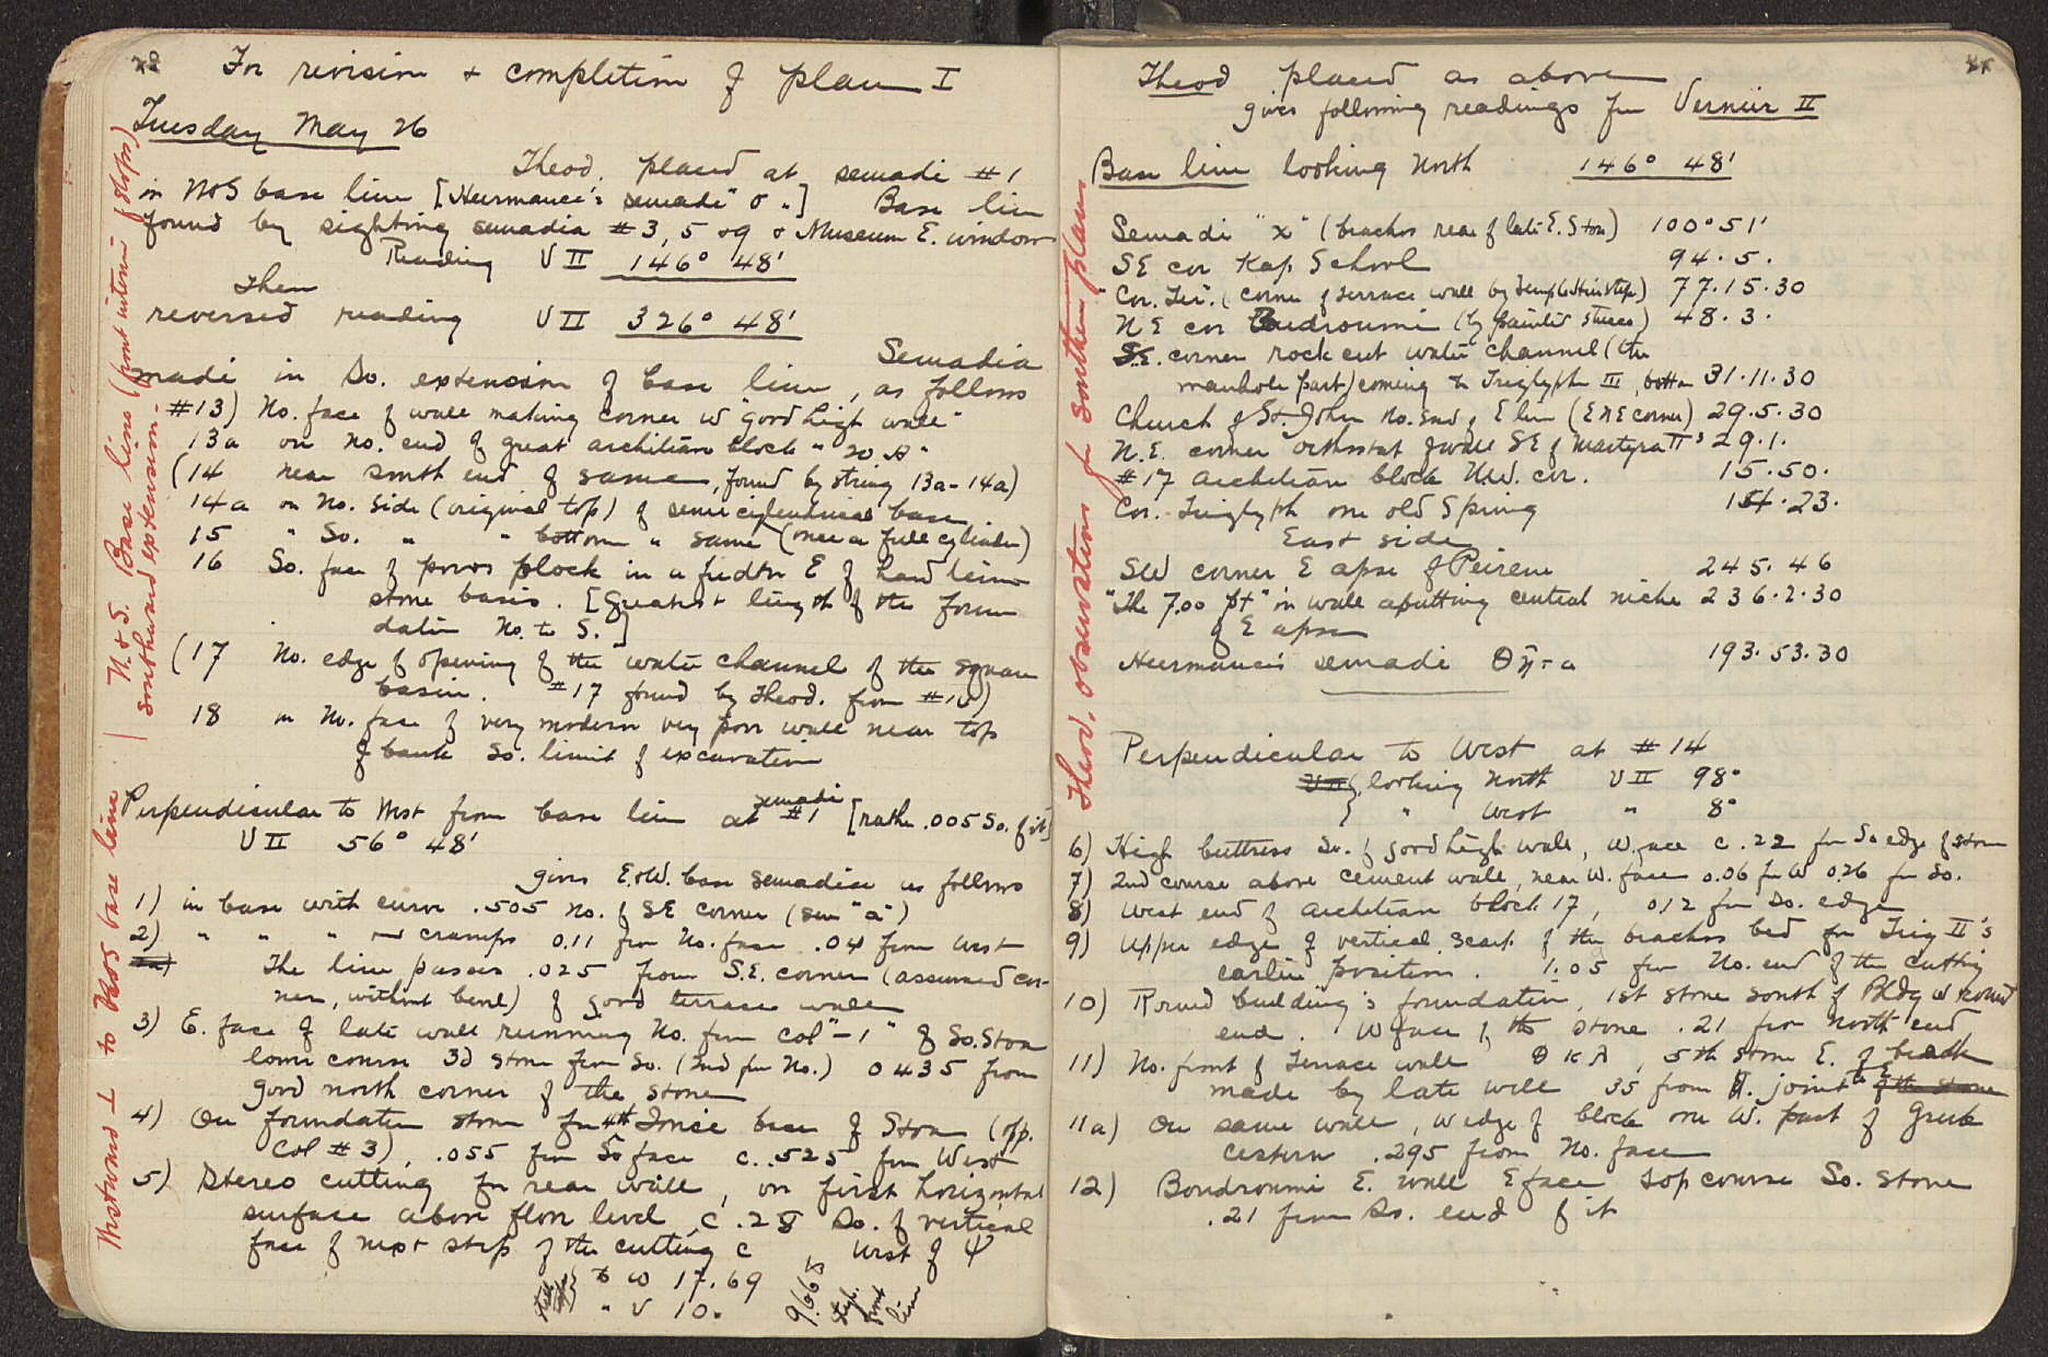 For revision + completion of plan I
Tuesday May 26
Theod. placed at semadi #1
in N & S base line [Heermance's "semadi" σ "] Base line
found by sighting semadia #3, 5 + 9 + Museum E. window
Reading V II 146° 48'
Then
reversed reading V II 326° 48'
Semadia
made in So. extension of base line, as follows
#13) No. face of wall making corner w "good high wall"
13a on No. end of great architrave block "20 A"
(14 near south end of same, found by string 13a-14a)
14a on No. side (original top) of semicylindrical base
15 " So. " " bottom " same (once a full cylinder)
16 So. face of poros block in a fndtn E of hard lime
stone basis. [Greatest length of the foun
dation No. to S.]
(17 No. edge of opening of the water channel of the square
basin. #17 found by Theod. from #18)
18 on No. face of very modern very poor wall near top
of bank So. limit of excavation
Perpendicular to West from base line at semadi #1 [rather .005 So. of it]
V II 56° 48'
gives E. & W. base semadia as follows
1) in base with curve .505 No. of SE corner (sem "a")
2) " " " cramps 0.11 from No. face .04 from West
The line passes .025 from S.E. corner (assumed cor-
ner, without bevel) of good terrace wall
3) E. face of late wall running No. from Col "-1" of So. Stoa
lower course 3d stone from So. (2nd from No.) 0435 from
good north corner of the stone
4) On foundation stone for 4th Ionic base of Stoa (opp.
Col #3), .055 from So face c. .525 from West
5) Stereo cutting for rear wall, on first horizontal
surface above floor level, c .28 So. of vertical
face of next step of the cutting c , West of Ψ
to W 17.69
" V 10.
9.668
front
line
N. + S. Base line (front interior of shops)
southward extension.
Westward ⊥ to N & S base line
Theod placed as above
gives following readings from Vernier II
Base line looking North 146° 48'
Semadi "x" (brachos rear of late E. Stoa) 100° 51'
SE cor Kap. School 94. 5.
"Cor. Ter". (corner of terrace wall by Temple Hill steps) 77.15.30
NE cor Boudroumi (by painted stucco) 48. 3.
S.E. corner rock cut water channel (the
manhole part) coming to Triglyph III, bottom 31.11.30
Church of St. John No. end of E line (E N E corner) 29.5.30
N.E. corner orthostat of wall SE of Martyra II's 29.1.
#17 Architrave block N.W. cor. 15.50.
Cor. Triglyph over old Spring 154.23.
East side
SW corner E apse of Peirene 245.46
"The 7.00 pt" in wall abutting central niche 236.2.30
of E apse
Heermance's semadi Θη-a 193.53.30
Perpendicular to West at #14
looking North V II 98°
" West " 8°
6) High buttress So. of good high wall, W. face c .22 from So edge of stone
7) 2nd course above cement wall, near W. face 0.06 from W 0.26 from So.
8) West end of architrave block 17, 0.12 from So. edge
9) Upper edge of vertical scarp of the brachos bed for Trig II's
earlier position. 1.05 from No. end of the cutting
10) Round building's foundation, 1st stone south of Bldg w round
end. W face of the stone .21 from north end
11) No. front of Terrace wall Θ K A, 5th stone E. of break
made by late well 35 from W. joint
11a) On same wall, W edge of block over W. part of Greek
cistern .295 from No. face
12) Boudroumi E. wall E face top course So. stone
.21 from So. end of it
Theod. observations for southern plans